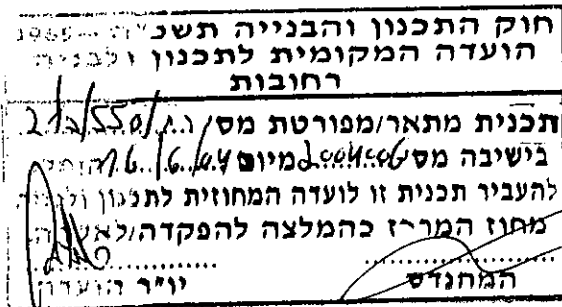 חוק התכנון והבנייה תשכ"ה - 1965
הועדה המקומית לתכנון ולבניה
רחובות
תכנית מתאר/מפורטת מס'
בישיבה מס' 2004006 מיום 16/6/04
להעביר תכנית זו לועדה המחוזית לתכנון ולבניה
מחוז המרכז בהמלצה להפקדה/לאשרה
המהנדס
יו"ר הועדה